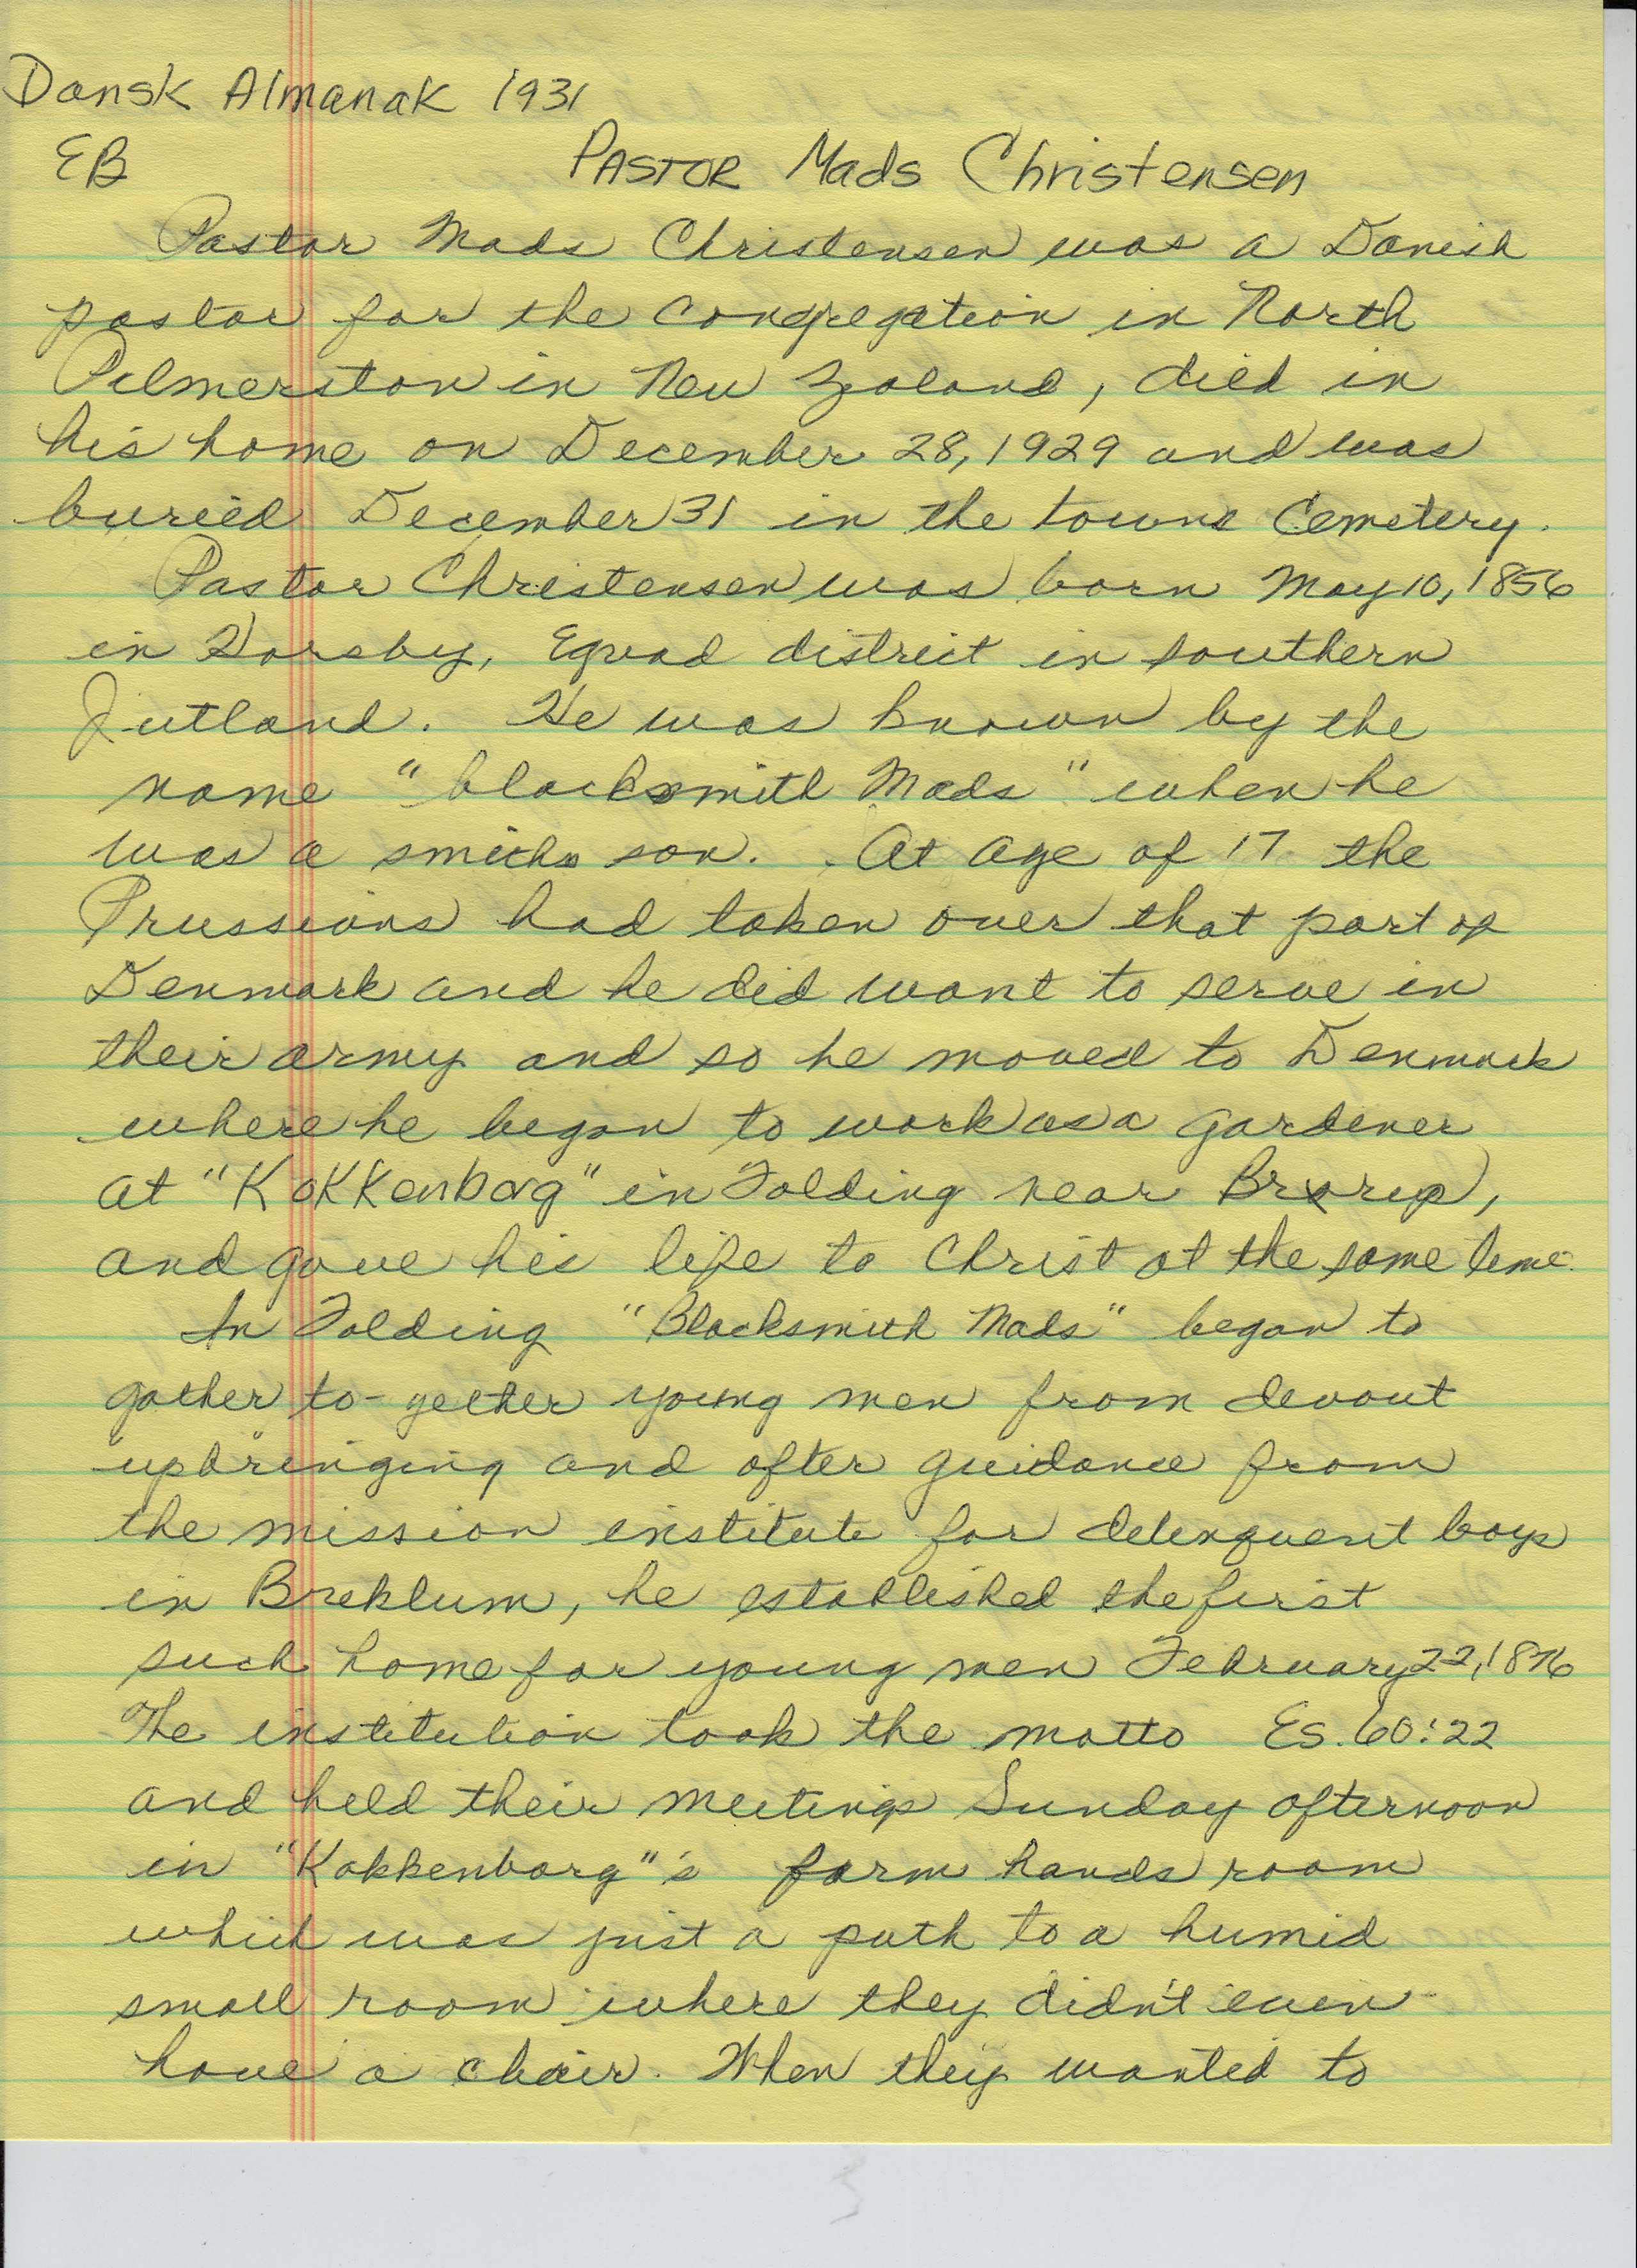 Dansk Almanak 1931
EB PASTOR Mads Christensen
Pastor Mads Christensen was a Danish
pastor for the congregation in North
Pilmerston in New Zealand, died in
his home on December 28, 1929 and was
buried December 31 in the towns Cemetery.
Pastor Christensen was born May 10, 1856
in Horsby, Egvad district in southern
Jutland. He was known by the
name "blacksmith Mads" when he
was a smiths son. At age of 17 the
Prussians had taken over that part of
Denmark and he did want to serve in
their army and so he moved to Denmark
where he began to work as a gardener
at "Kokkenborg" in Folding near Brørup,
and gave his life to Christ at the same time.
In Folding "Blacksmith Mads" began to
gather to-gether young men from devout
upbringing and after guidance from
the mission institute for delenquent boys
in Breklum, he established the first
such home for young men February 22, 1876
The institution took the motto Es. 60:22
and held their meetings Sunday afternoon
in "Kokkenborg"'s farm hands room
which was just a path to a humid
small room where they didn't even
have a chair. When they wanted to